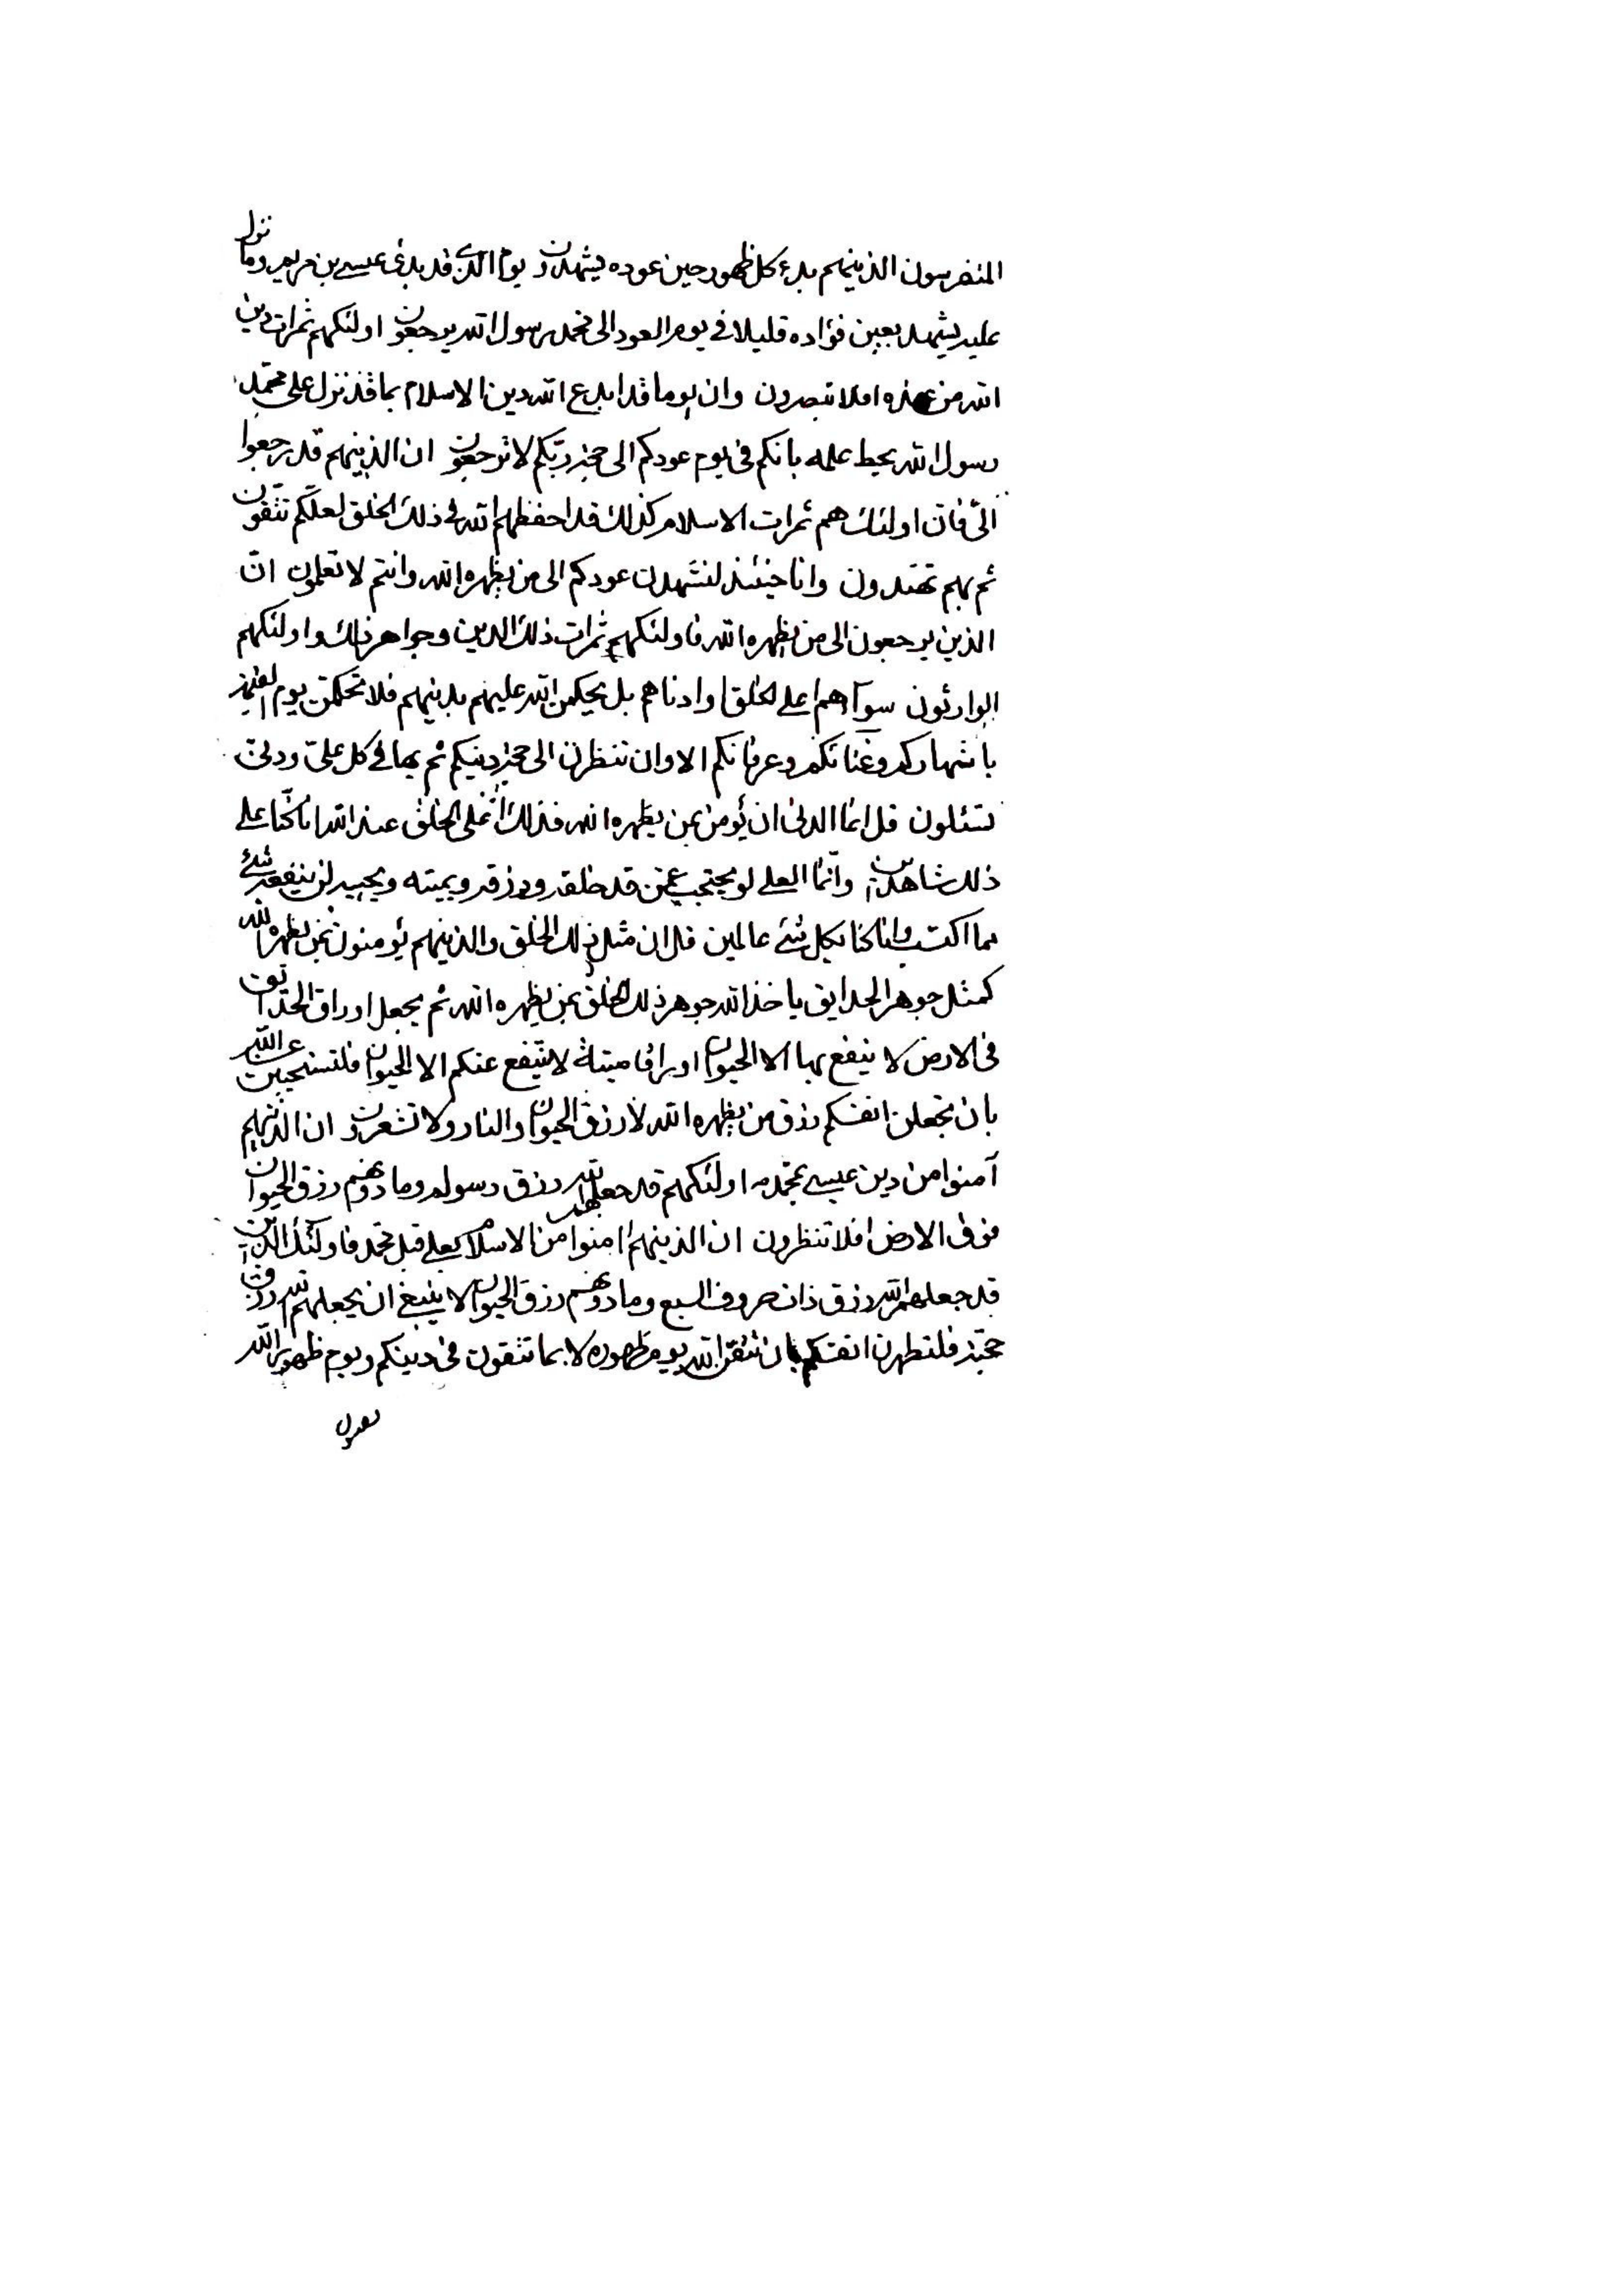 المتفرسون الذينهم بدء كل ظهور حين عوده يشهدون يوم الذي قد بدئ عيسى بن مريم وما نزل
عليه يشهد بعين فؤاده قليلا في يوم العود الى محمد رسول الله يرجعون اولئكهم ثمرات دين
الله من عنده افلا تبصرون وان يوما قد ابدع الله دين الاسلام بما قد نزل على محمد
رسول الله يحيط علمه بانكم في يوم عودكم الى حجة ربكم لا ترجعون ان الذينهم قد رجعوا
الىّ فان اولئك هم ثمرات الاسلام كذلك قد احفظهم الله في ذلك الخلق لعلكم تتقون
ثم بهم تهتدون وانا حينئذ لنشهدن عودكم الى من يظهره الله وانتم لا تعلمون ان
الذين يرجعون الى من يظهره الله فاولئكهم ثمرات ذلك الدين وجواهر ذلك واولئكهم
الوارثون سوآء هم اعلى الخلق او ادناهم بل يحكمن الله عليهم بدينهم فلا تحكمن يوم القيمة
باشهاركم وغنائكم وعرفانكم الا وان تنظرن الى حجة دينكم ثم بها في كل علىّ ودنىّ
تسئلون قل انما الدنى ان يؤمن بمن يظهره الله فذلك اعلى الخلق عند الله انا كنا على
ذلك شاهدين وانما العلى لو يحتجب عمن قد خلقه ورزقه ويميته ويحييه لن ينفعه شئ
مما اكتسب وانا كنا بكل شئ عالمين قل ان مثل ذلك الخلق والذينهم يؤمنون بمن يظهره الله
كمثل جوهر الحدايق ياخذ الله جوهر ذلك الخلق بمن يظهره الله ثم يجعل اوراق الحدائق
في الارض لا ينفع بها الا الحيوان اوراقا ميتة لا ينتفع عنكم الا الحيوان فلتستحيين عن الله
بان تجعلن انفسكم رزق من يظهره الله لا رزق الحيوان والنار ولا تشعرون ان الذينهم
آمنوا من دين عيسى بمحمد اولئكهم قد جعلهم الله رزق رسوله وما دونهم رزق الحيوان
فوق الارض افلا تنظرون ان الذينهم امنوا من الاسلام بعلي قبل محمد فاولئك الذين
قد جعلهم الله رزق ذات حروف السبع وما دونهم رزق الحيوان لا ينبغي ان يجعلهم الله رزق
حجته فلتطهرن انفسكم بان تتقن الله يوم ظهوره لا بما تتقون في دينكم ويوم ظهور الله